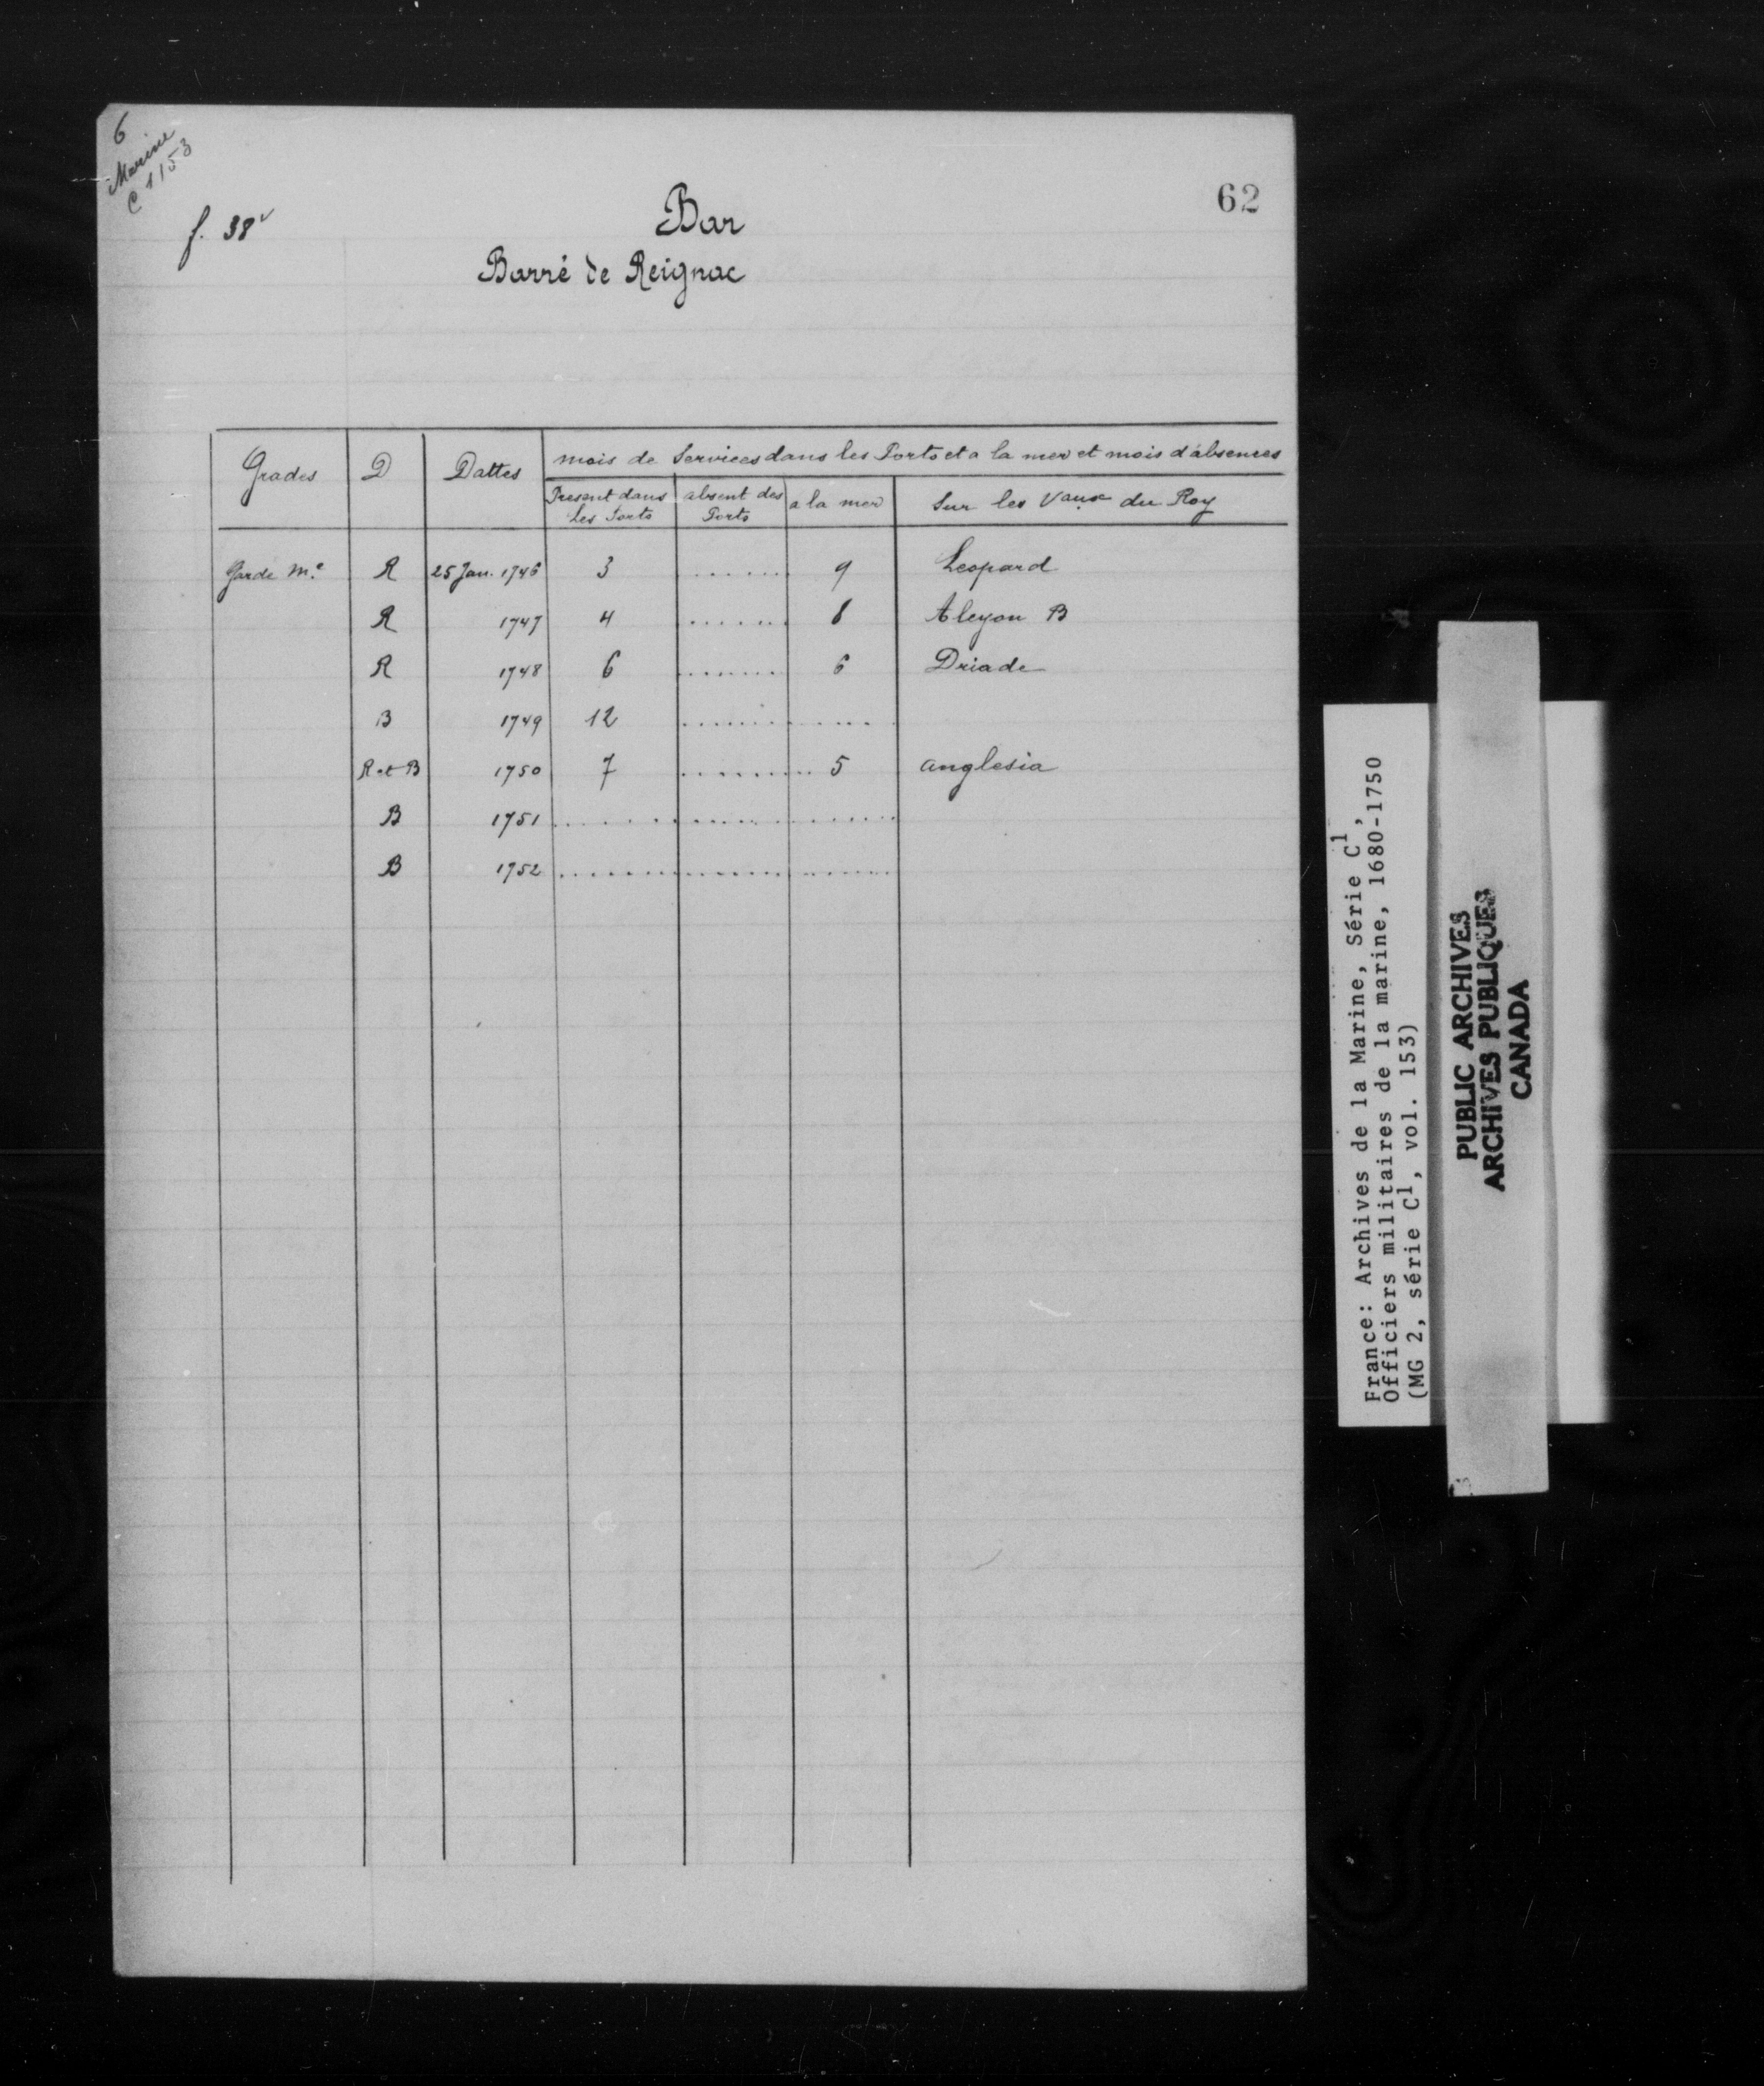 6
Marine
C 1 153
f. 38v
62
Bar
Barré de Reignac
Grades D Dattes mois de Services dans les Ports et a la mer et mois d'absences
Present dans Les Ports absent des Ports a la mer Sur les Vaux du Roy
Garde M.e R 25 Jan. 1746 3 ....... 9 Leopard
R 1747 4 ....... 8 Alcyon B
R 1748 6 ........ 6 Driade
B 1749 12 ............
R et B 1750 7 ......... 5 anglesia
B 1751 ....................
B 1752 ....................
France: Archives de la Marine, Série C1,
Officiers militaires de la marine, 1680-1750
(MG 2, série C1, vol. 153)
PUBLIC ARCHIVES
ARCHIVES PUBLIQUES
CANADA